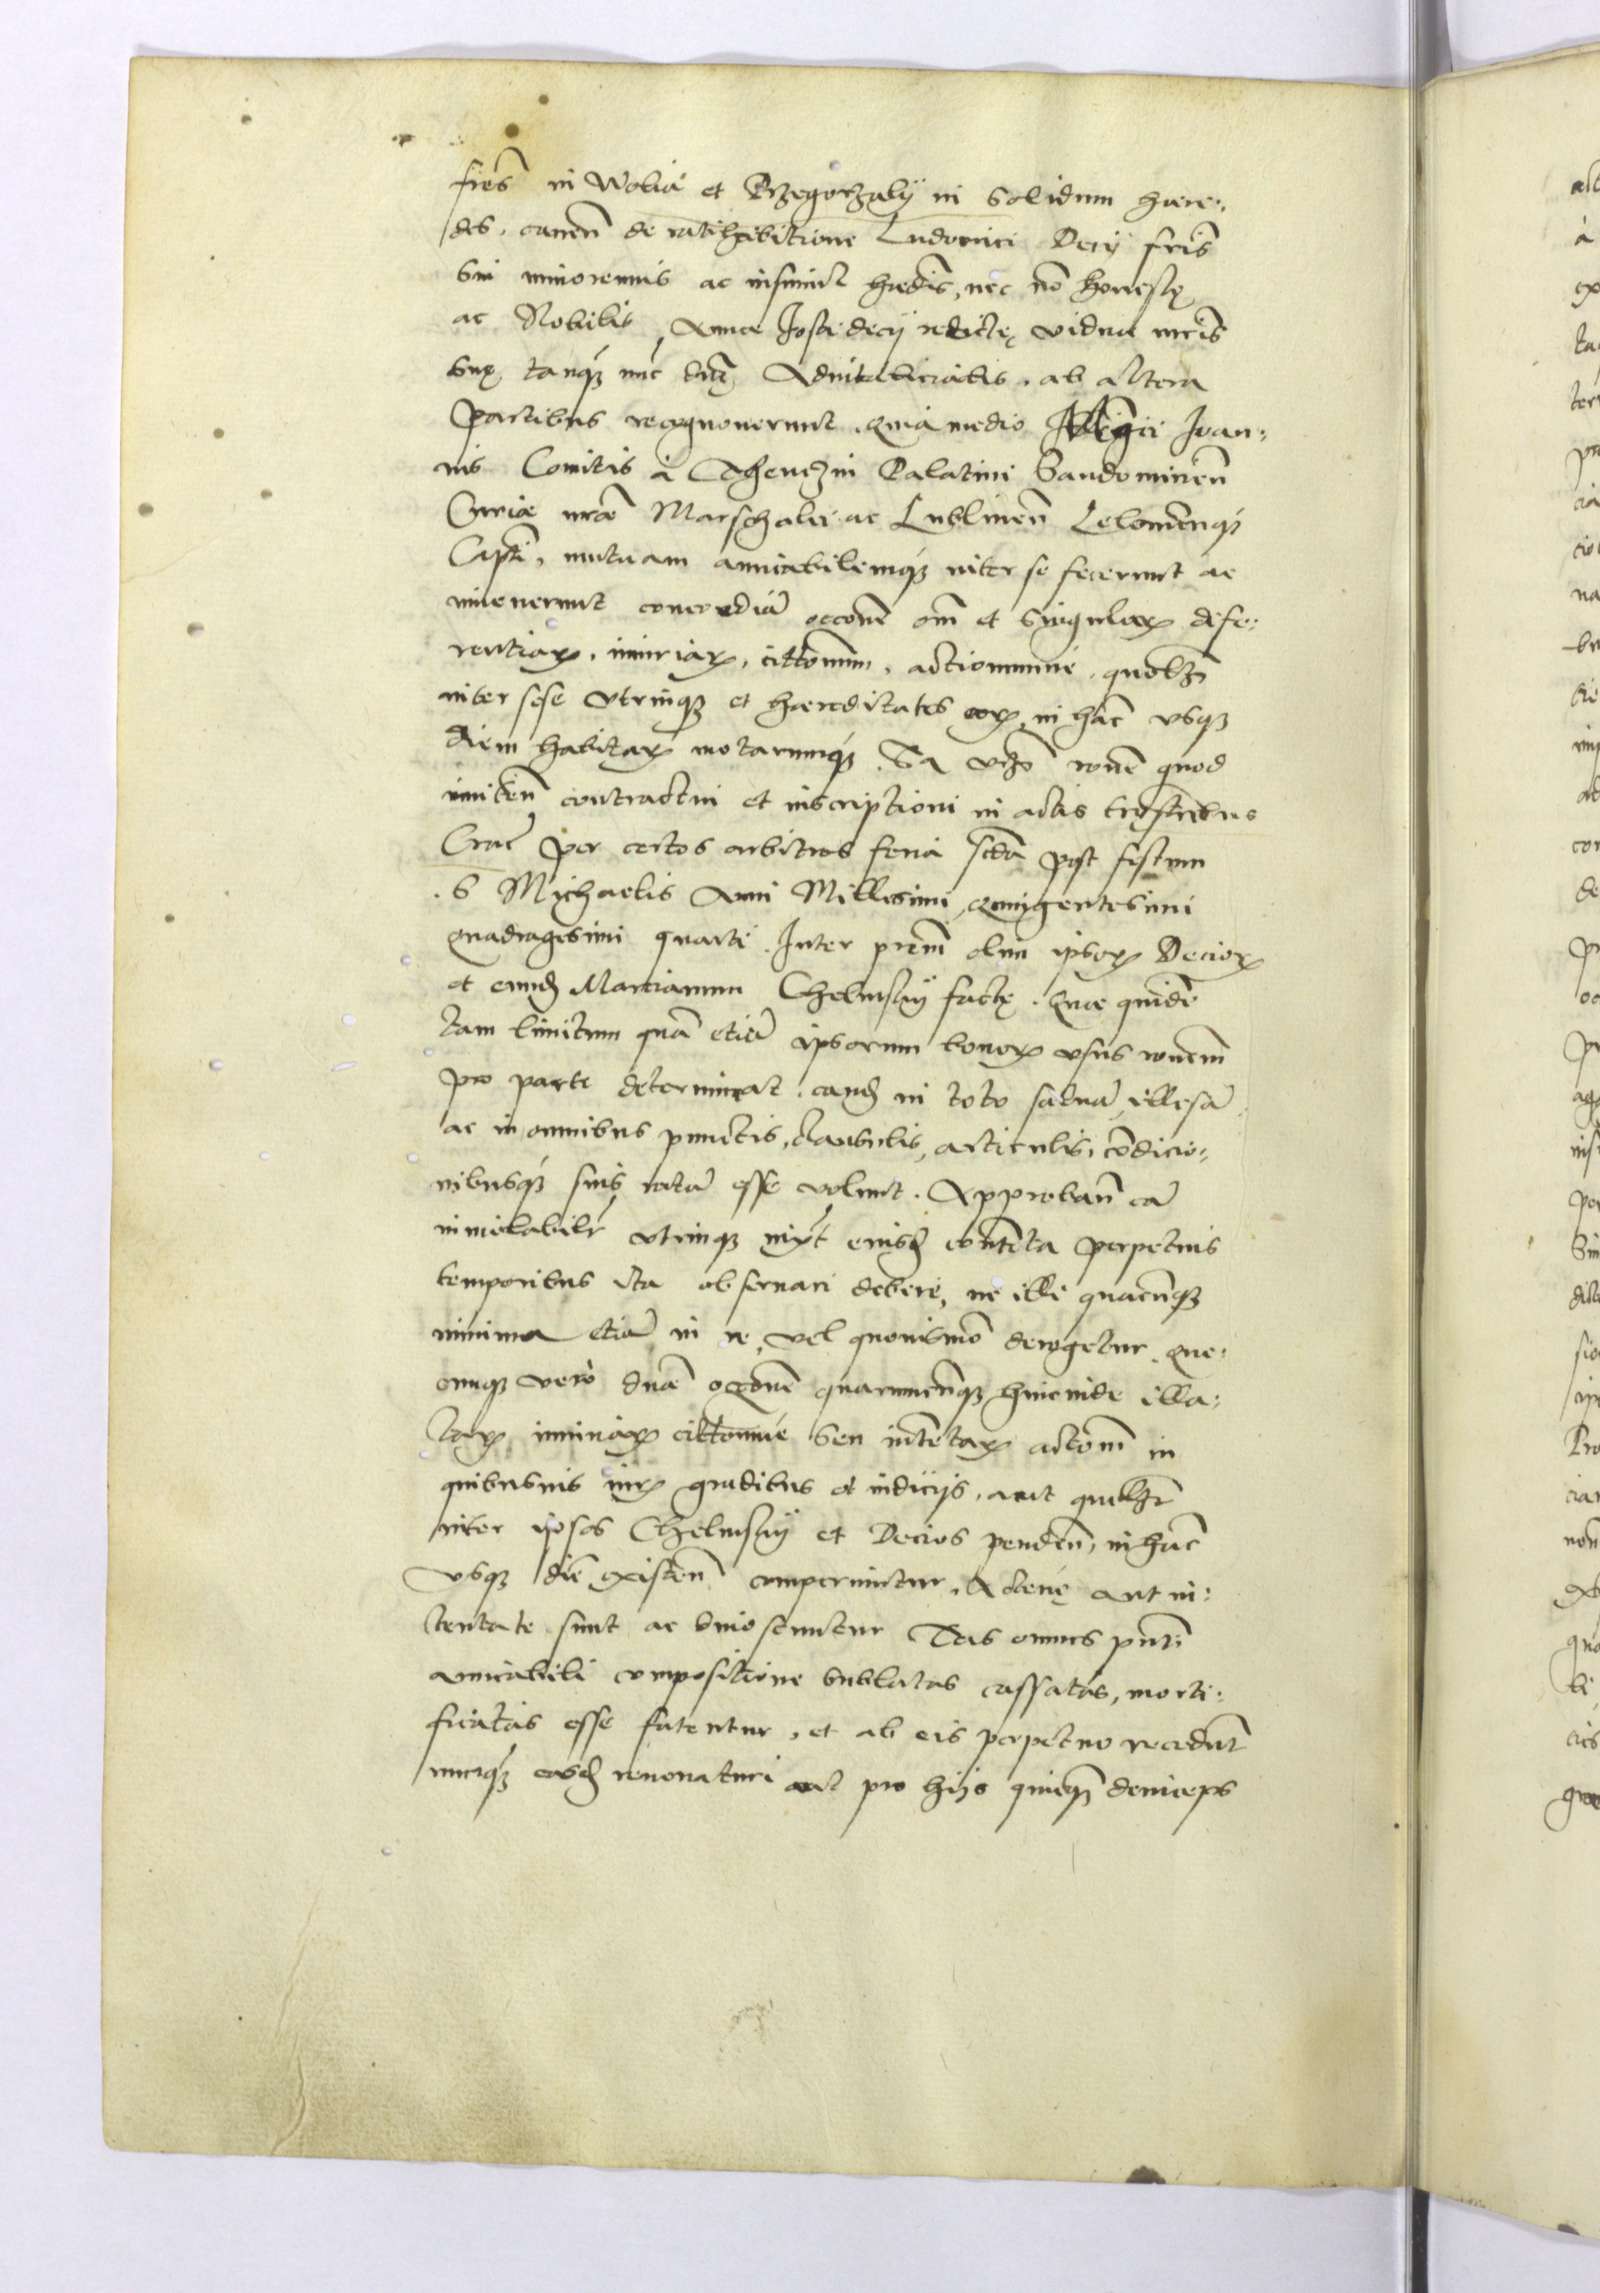 fres in Wolia et Przegorzaly in solidum hære:
des, cauen de ratihabitione Ludovici Decy fris
sui minorennis ac insimul hædis, nec nō honestę
ac Nobilis, Anna Josti decij relictę vidua mris
suę tanq́ʒ nūc Advitalicialis, ab altera
partibus recognoverunt. Quia medio Magci Joan:
nis Comitis à Thenczin Palatini Sandomirien̄
Curiæ nrae Marschalci ac Lublinen̄ Lelowienq́ʒ
Capti, mutuam amicabilemq́ʒ inter se fecerunt ac
inierunt concordiā occone om̄ et singularʒ dife:
rentiarʒ, iniuriarʒ, cittonum, actionumue, quolʒ
inter sese utrinqʒ et hæreditates eorʒ in hāc usqʒ
diem habitarʒ motarumq́ʒ. Sa vʒo rone quod
limiten̄ contractui et inscriptioni in actis trestribus
Crac̄ per certos arbitros feria scda post festum
S Michaelis Anni Millesimi Quingentesimi
quadragesimi quarti. Inter prem olim ipsorʒ Deciorʒ
et eundʒ Marcianum Chelmsky factę. Quæ quidē
tam limitum quā etiā ipsorum bonorʒ usus ronem
pro parte determinat. eandʒ in toto saluā, illesā
ac in omnibus punctis, clausulis, articulis, cōdicio:
nibusq́ʒ suis ratā esse volunt. Approban̄ eā
inviolabilr utrinqʒ iuxt eiusdʒ contēta perpetuis
temporibus ita observari debere, ne illi quacunqʒ
minima etiā in re, vel quovismō derogetur. Que:
cunqʒ verò dnæ occone quarumcunqʒ hincinde illa:
tarʒ iniuriarʒ cittonūe seu intētatarʒ actonum in
quibusvis iurʒ gradibus et iudicijs, aut qualr
inter ipsos Chelmsky et Decios penden̄, in hāc
usqʒ diē existen̄ comperiuntur. Actenę aut in:
tentate sunt ac dinoscuntur Eas omnes pnti
amicabili compositione sublatas cassatas, morti:
ficatas esse fatentur, et ab eis perpetuo recedunt
nunqʒ easdʒ renovaturi aut pro hijs quicqʒ deinceps